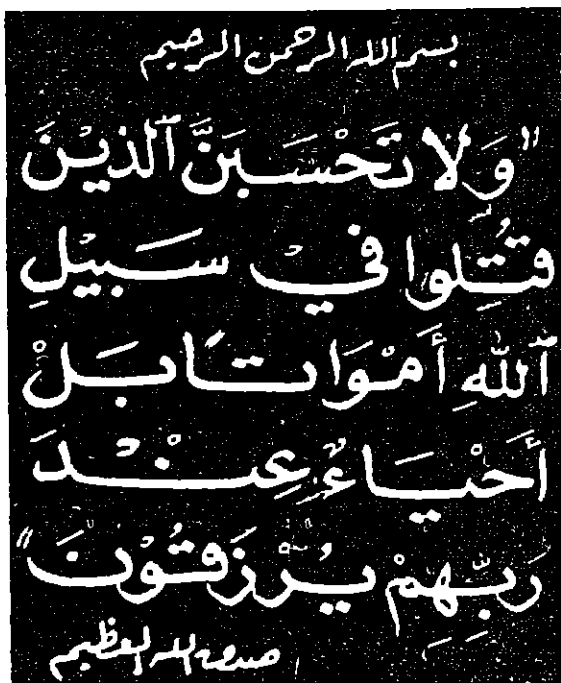 بسم الله الرحمن الرحيم
"وَلا تَحْسَبَنَّ ٱلذيْنَ
قُتِلوا فيْ سَبيْلِ
ٱللّهِ أَمْوَاتاً بَلْ
أَحْيَاءٌ عِنْدَ
رَبِّهِمْ يُرْزَقُوْنَ"
صدق الله العظيم